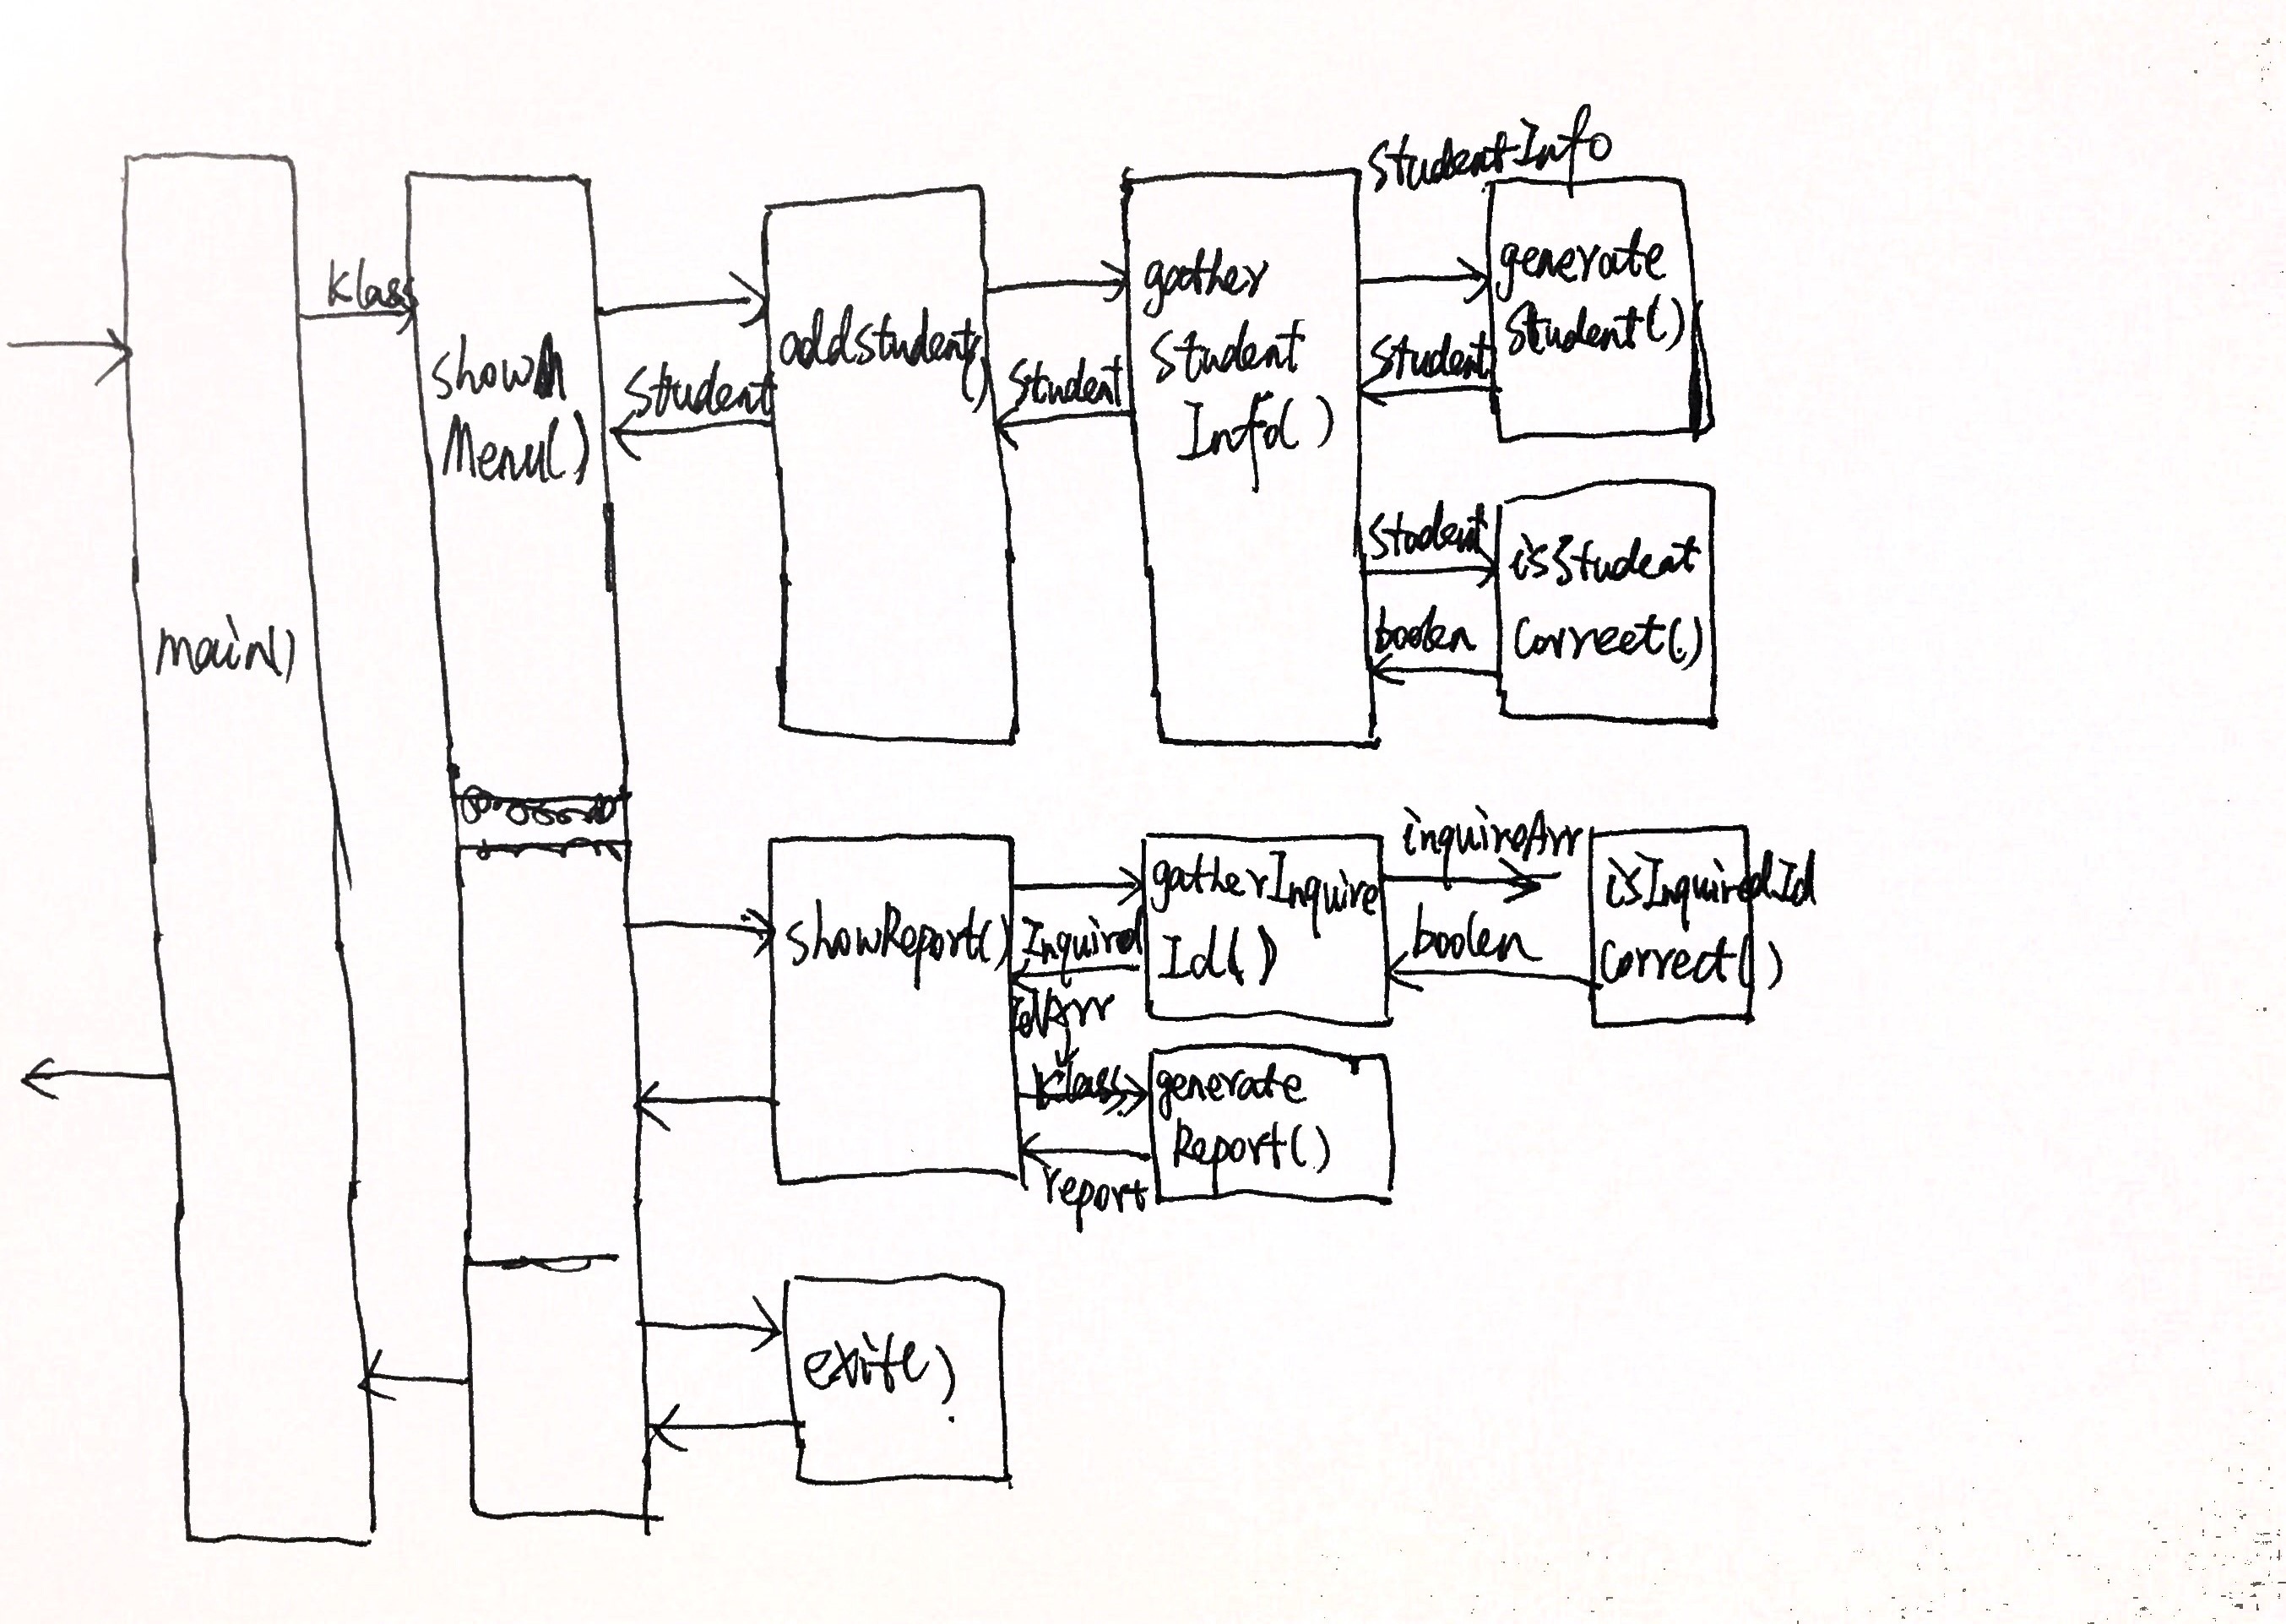 main()
Klass
show
Menu()
Student
addstudent()
Student
gather
Student
Info()
StudentInfo
generate
Student()
Student
Student
isStudent
Correct()
boolen
showReport()
Inquired
IdArr
gatherInquire
Id()
inquireArr
boolen
isInquiredId
Correct()
Klass
generate
Report()
report
exit()